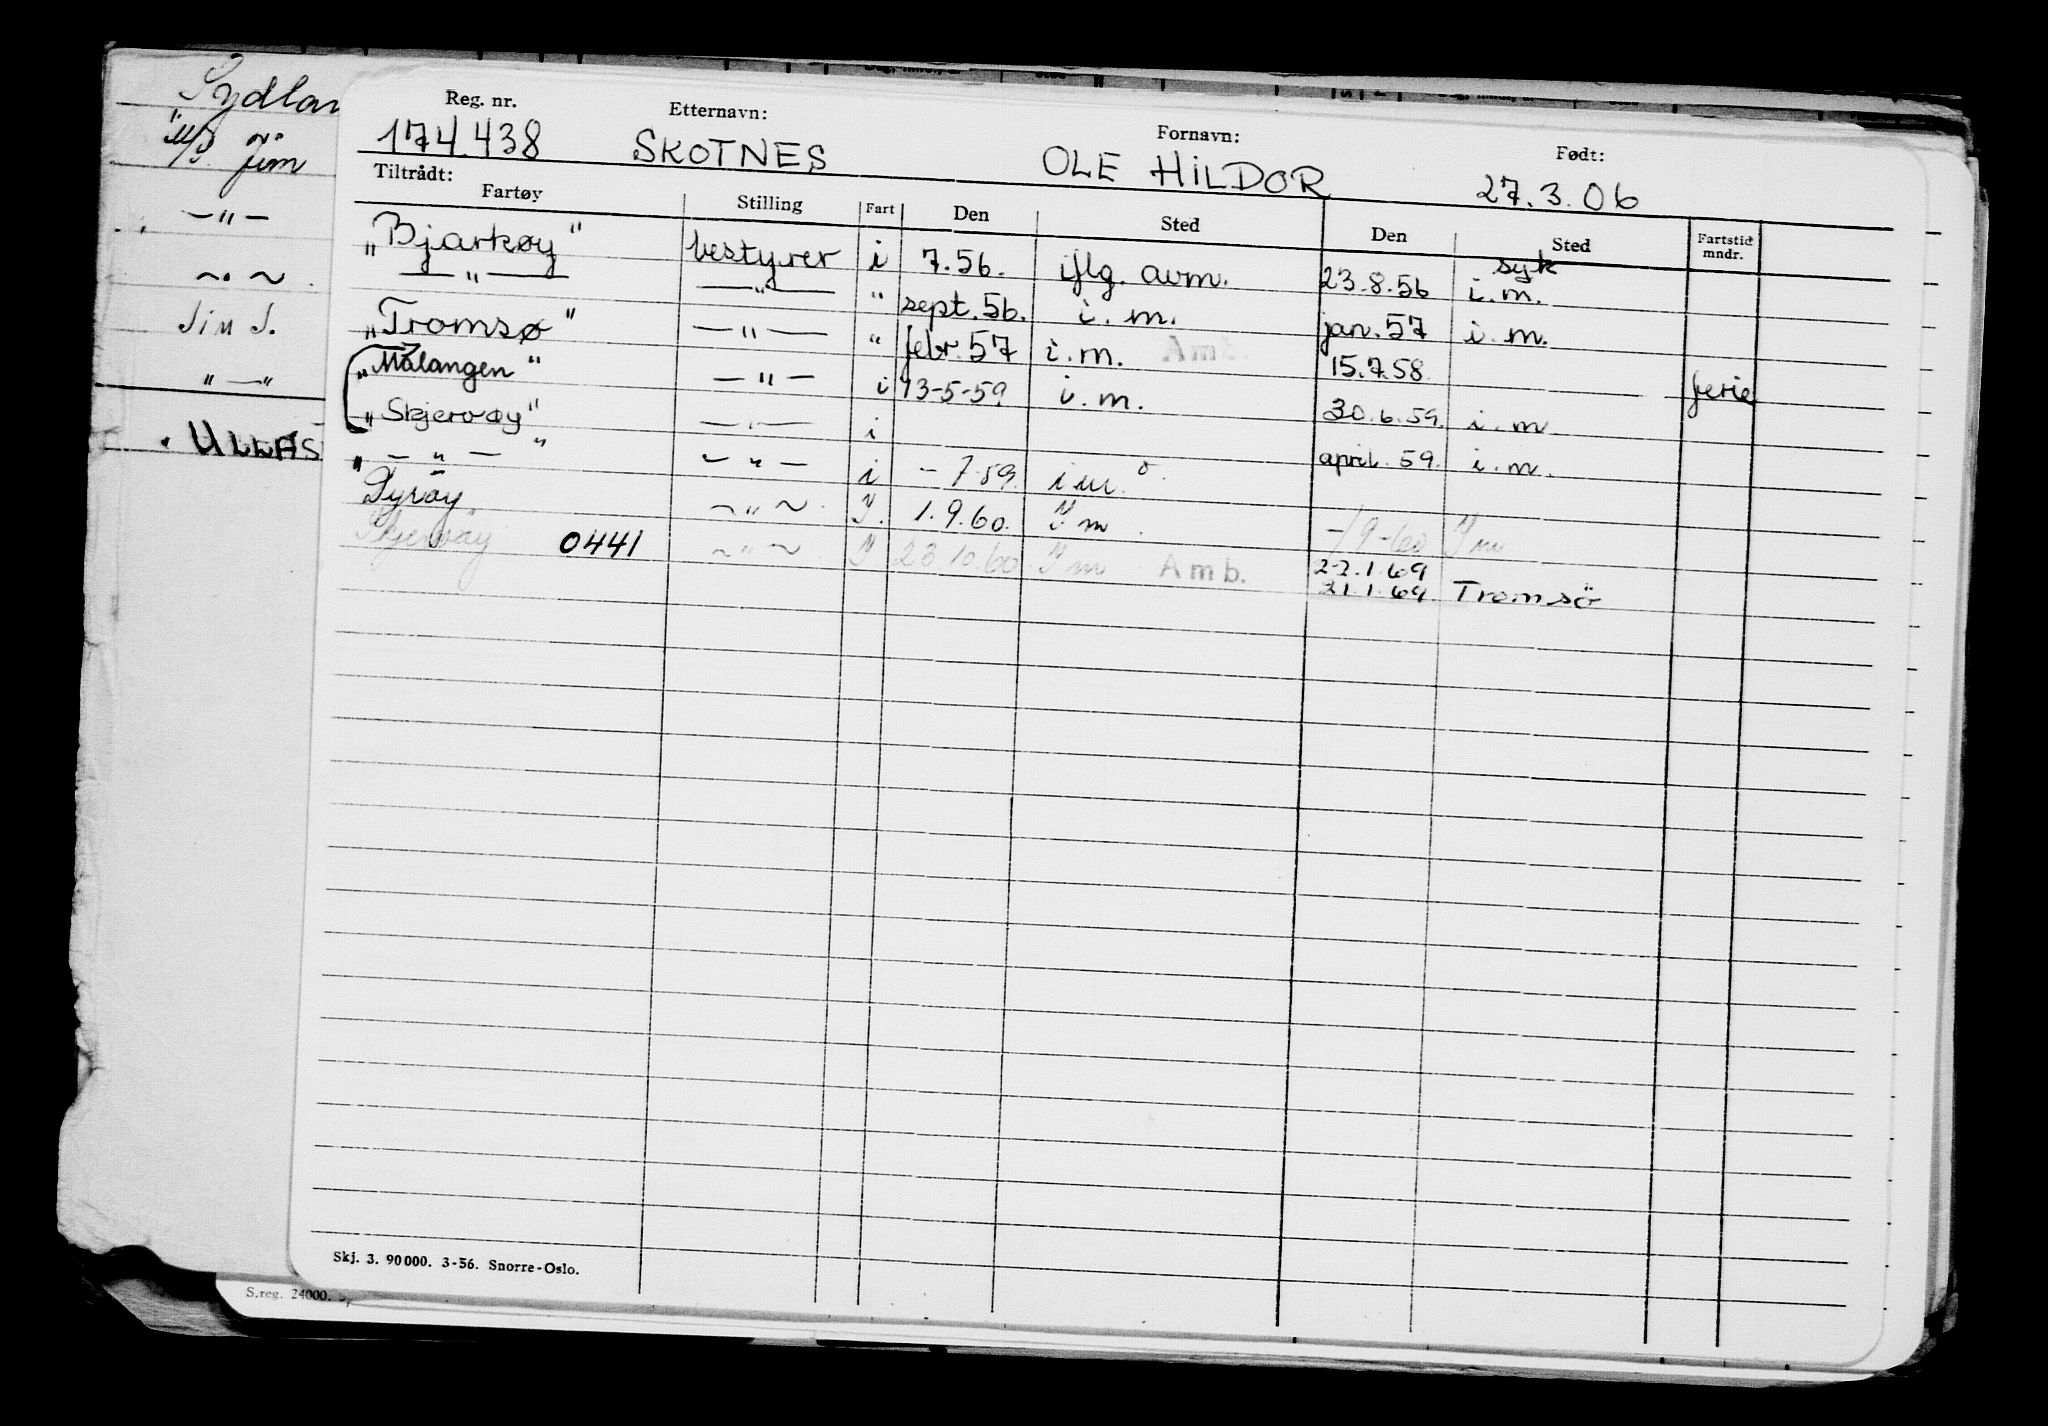 Reg. nr. Etternavn: Fornavn: Født:
174.438 SKOTNES OLE HILDOR 27.3.06
Tiltrådt:
Fartøy Stilling Fart Den Sted Den Sted Fartstid mndr.
"Bjarkøy" bestyrer i 7.56. iflg. avm. 23.8.56 syk i.m.
—"— —"— " sept.56. i.m. jan.57 i.m.
"Tromsø" —"— " febr.57 i.m. Amb. 15.7.58 ferie
"Målangen" —"— i 13-5-59 i.m. 30.6.59. i.m
"Skjervøy" —"— i april. 59. i.m.
" —"— " —"— i -7-59. i m.
Dyröy ~"~ Y. 1.9.60. Y m -/9-60 Y m
Skjervöy 0441 ~"~ Y 23.10.60 Y m Amb. 22.1.69
21.1.69 Tromsö
Skj. 3. 90000. 3-56. Snorre-Oslo.
S.reg. 24000.
Sydlan
"M/S. Jim
—"—
~"~
Jim J.
"—"
ULLAS